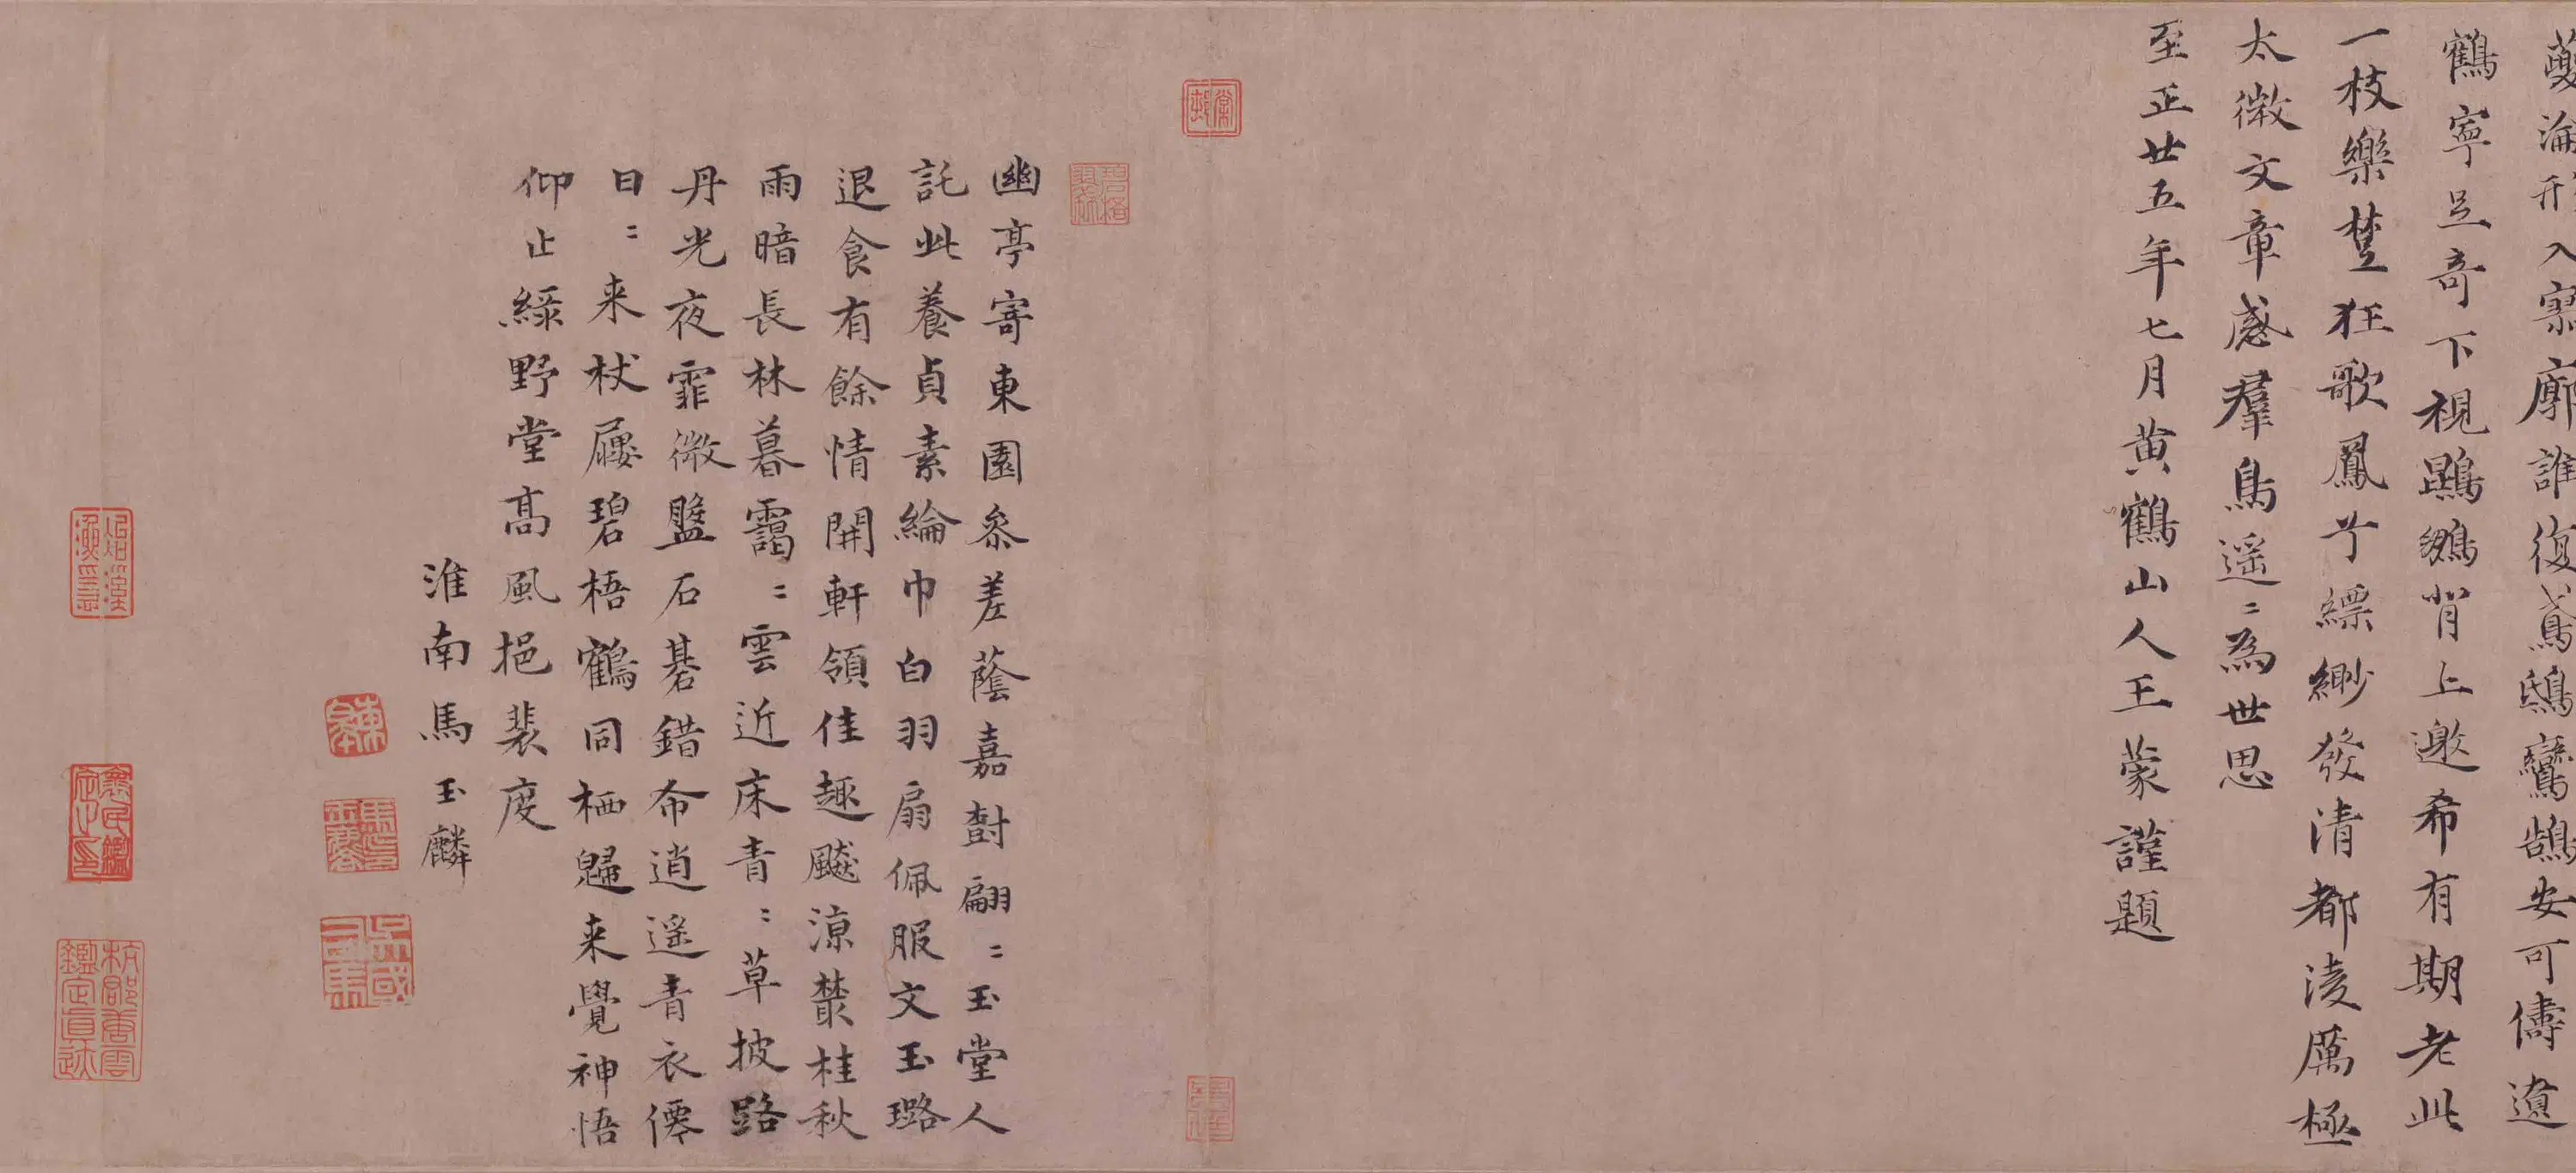 淪形入寥廓誰復鳶鴟鸞鵠安可儔遼
鶴寧足奇下視鵾鵷背上邀希有期老此
一枝樂楚狂歌鳳兮縹緲發清都凌厲極
太微文章感羣鳥遥〻為世思
至正廿五年七月黄鶴山人王蒙謹題
幽亭寄東園參差蔭嘉樹翩〻玉堂人
託此養貞素綸巾白羽扇佩服文玉璐
退食有餘情開軒領佳趣飈涼叢桂秋
雨暗長林暮靄〻雲近床青〻草披路
丹光夜霏微盤石碁錯布逍遥青衣僊
日〻来杖屨碧梧鶴同栖歸来覺神悟
仰止緑野堂高風挹裴度
淮南馬玉麟